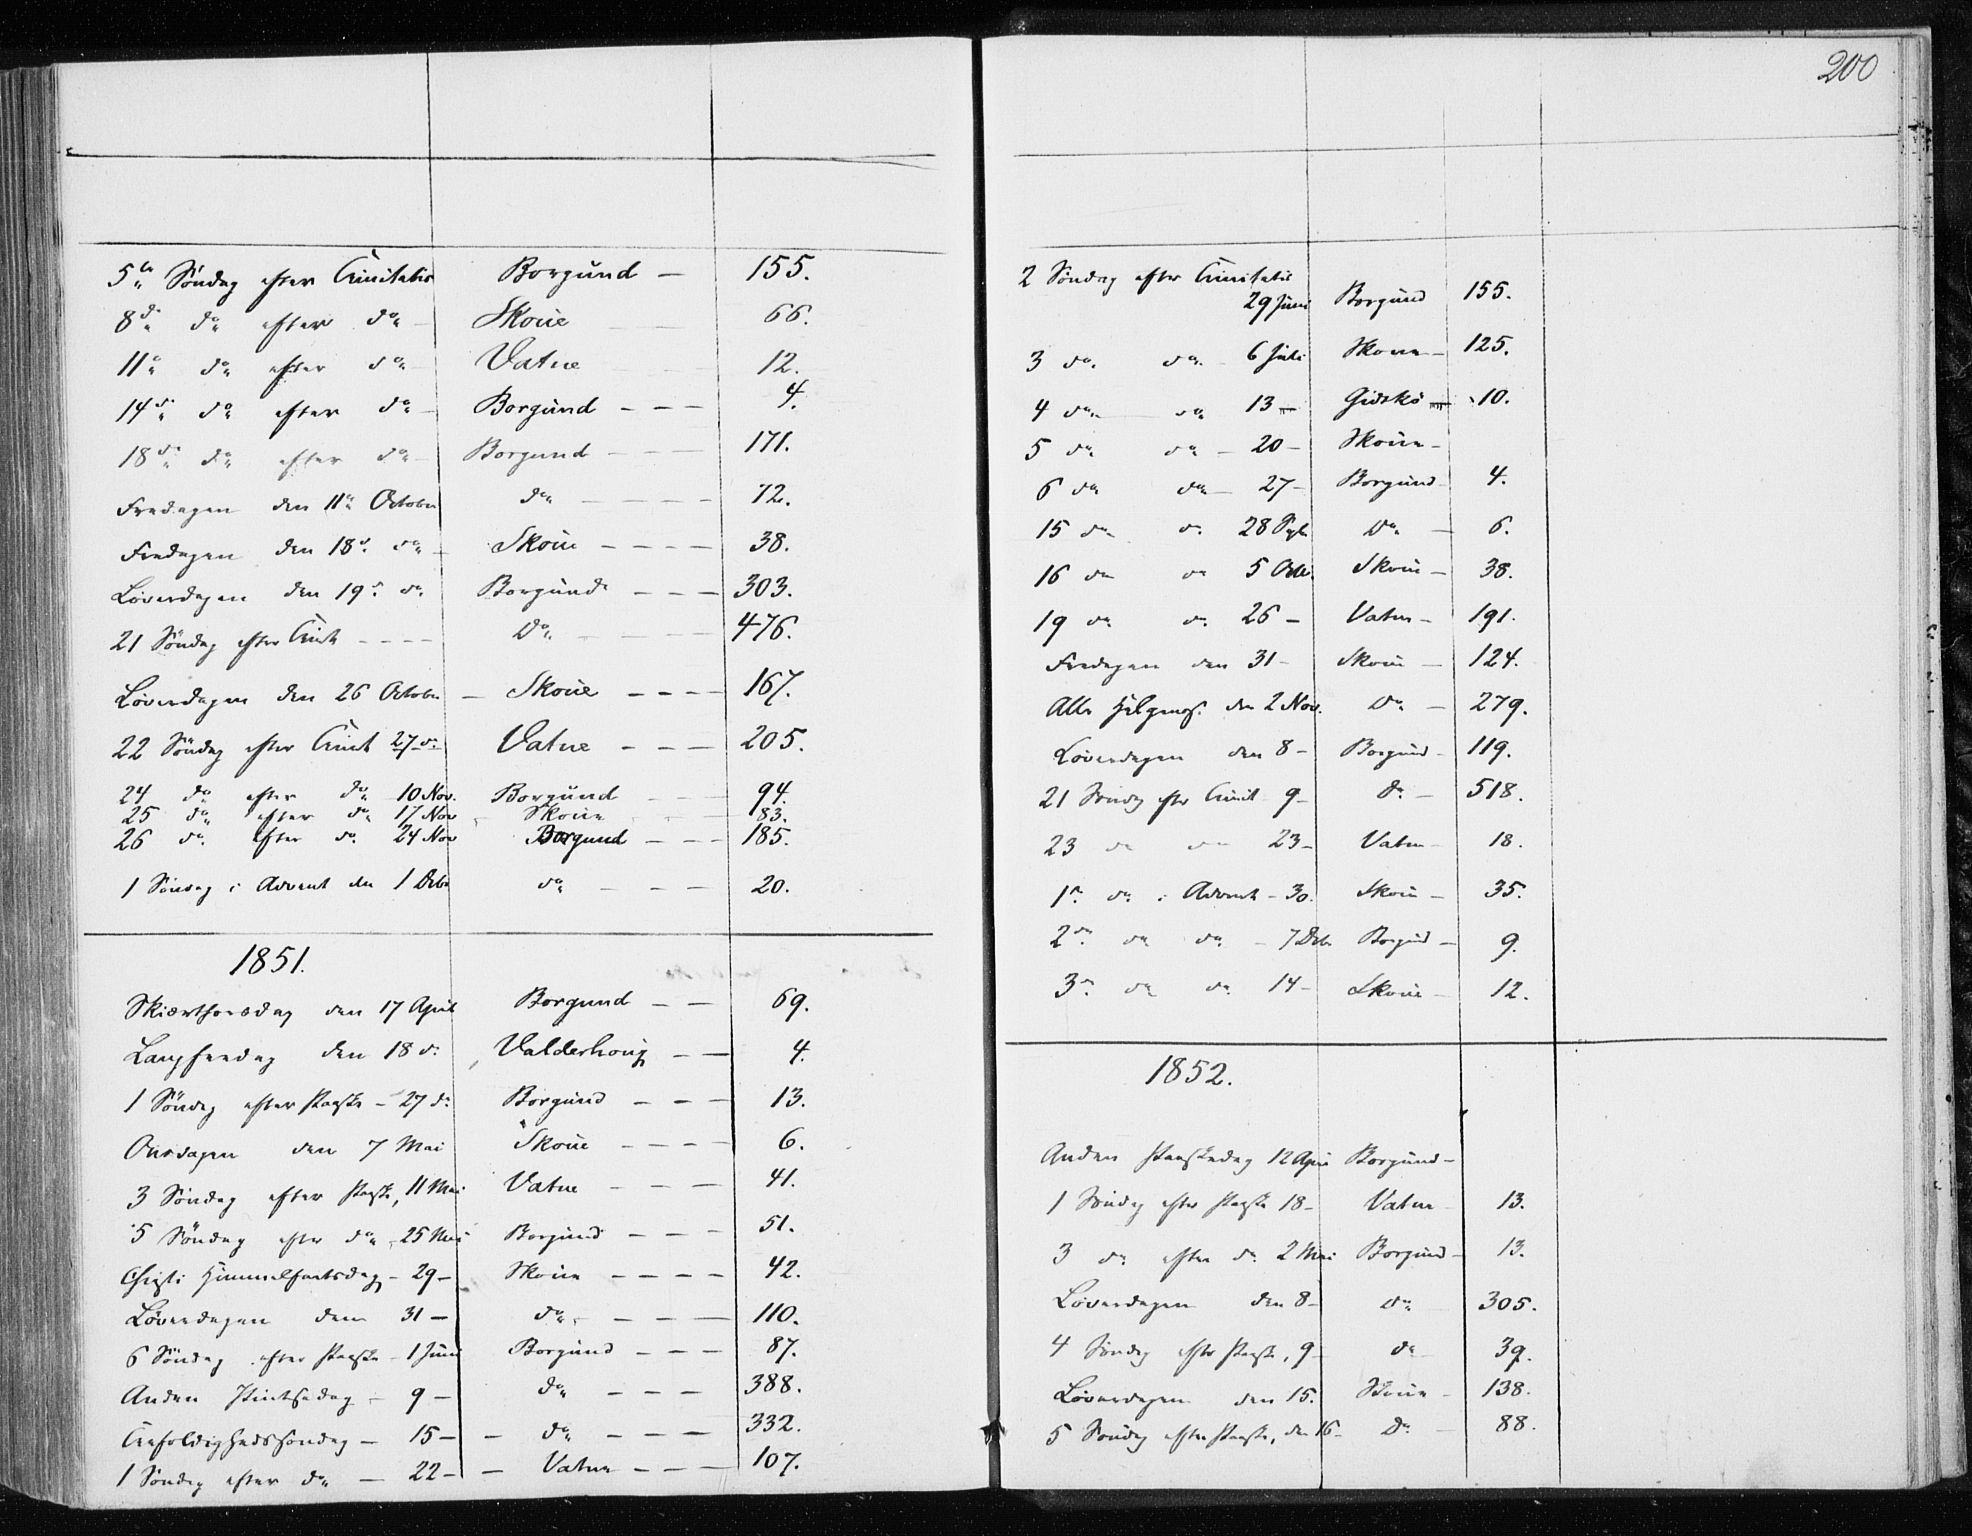 5te Søndag efter Trinitatis Borgund — 155.
8de do efter do — Skoue 66.
11te do efter do Vatne 12.
14de do efter do — Borgund — — — 4.
18de do efter do — Borgund — — — 171.
Fredagen den 11te October do — — — — 72.
Fredagen den 18de do — Skoue — — — — 38.
Løverdagen den 19de do Borgund — — — 303.
21 Søndag efter Trint — — — — Do — — — 476.
Løverdagen den 26 October — Skoue — — — — 167.
22 Søndag efter Trint 27 do Vatne — — — 205.
24 do efter do 10 Nov. Borgund — — 94.
25 do efter do 17 Nov Skoue 83.
26 do efter do 24 Nov Borgund — — — 185.
1 Søndag i Advent den 1 Debr do — — — 20.
1851.
Skiærthorsdag den 17 April Borgund — — 69.
Langfredag den 18 do Valderhoug — — 4.
1 Søndag efter Paaske — 27 do Borgund — — — 13.
Onsdagen den 7 Mai Skoue — — — — 6.
3 Søndag efter Paaske, 11 Mai Vatne — — — 41.
5 Søndag efter do — 25 Mai Borgund — — — 51.
Christi Himmelfartsdag — 29 — Skoue — — — — 42.
Løverdagen den 31 — do — — — — 110.
6 Søndag efter Paaske — 1 Juni Borgund — — — 87.
Anden Pintsedag — 9 — do — — — 388.
Trefoldighedssøndag — 15 — — do — — — — 332.
1 Søndag efter do — 22 — — Vatne — — — 107.
200
2 Søndag efter Trinitatis
29 Juni Borgund 155.
3 do do — 6 Juli Skoue — 125.
4 do do 13 — Gidskø — 10.
5 do do — 20 — Skoue —
6 do do — 27 — Borgund — 4.
15 do do 28 Sept Do — 6.
16 do do 5 Octb. Skoue — 38.
19 do do 26 — Vatne — 191.
Fredagen den 31 — Skoue — 124.
Alle Helgens. den 2 Nov. Do — 279.
Løverdagen den 8 — Borgund — 119.
21 Søndag efter Trinit — 9 — do — 518.
23 do do 23 — Vatne — 18.
1ste do i Advent — 30. Skoue — 35.
2den do do — 7 Debr. Borgund — 9.
3die do do 14 — Skoue — 12.
1852.
Anden Paaskedag 12 April Borgund —
1 Søndag efter Paaske 18 — Vatne 13.
3 do efter do 2 Mai Borgund — 13.
Løverdagen den 8 — do 305.
4 Søndag efter Paaske, 9 — do 39.
Løverdagen den 15. Skoue — 138.
5 Søndag efter Paaske, den 16 — Do — 88.